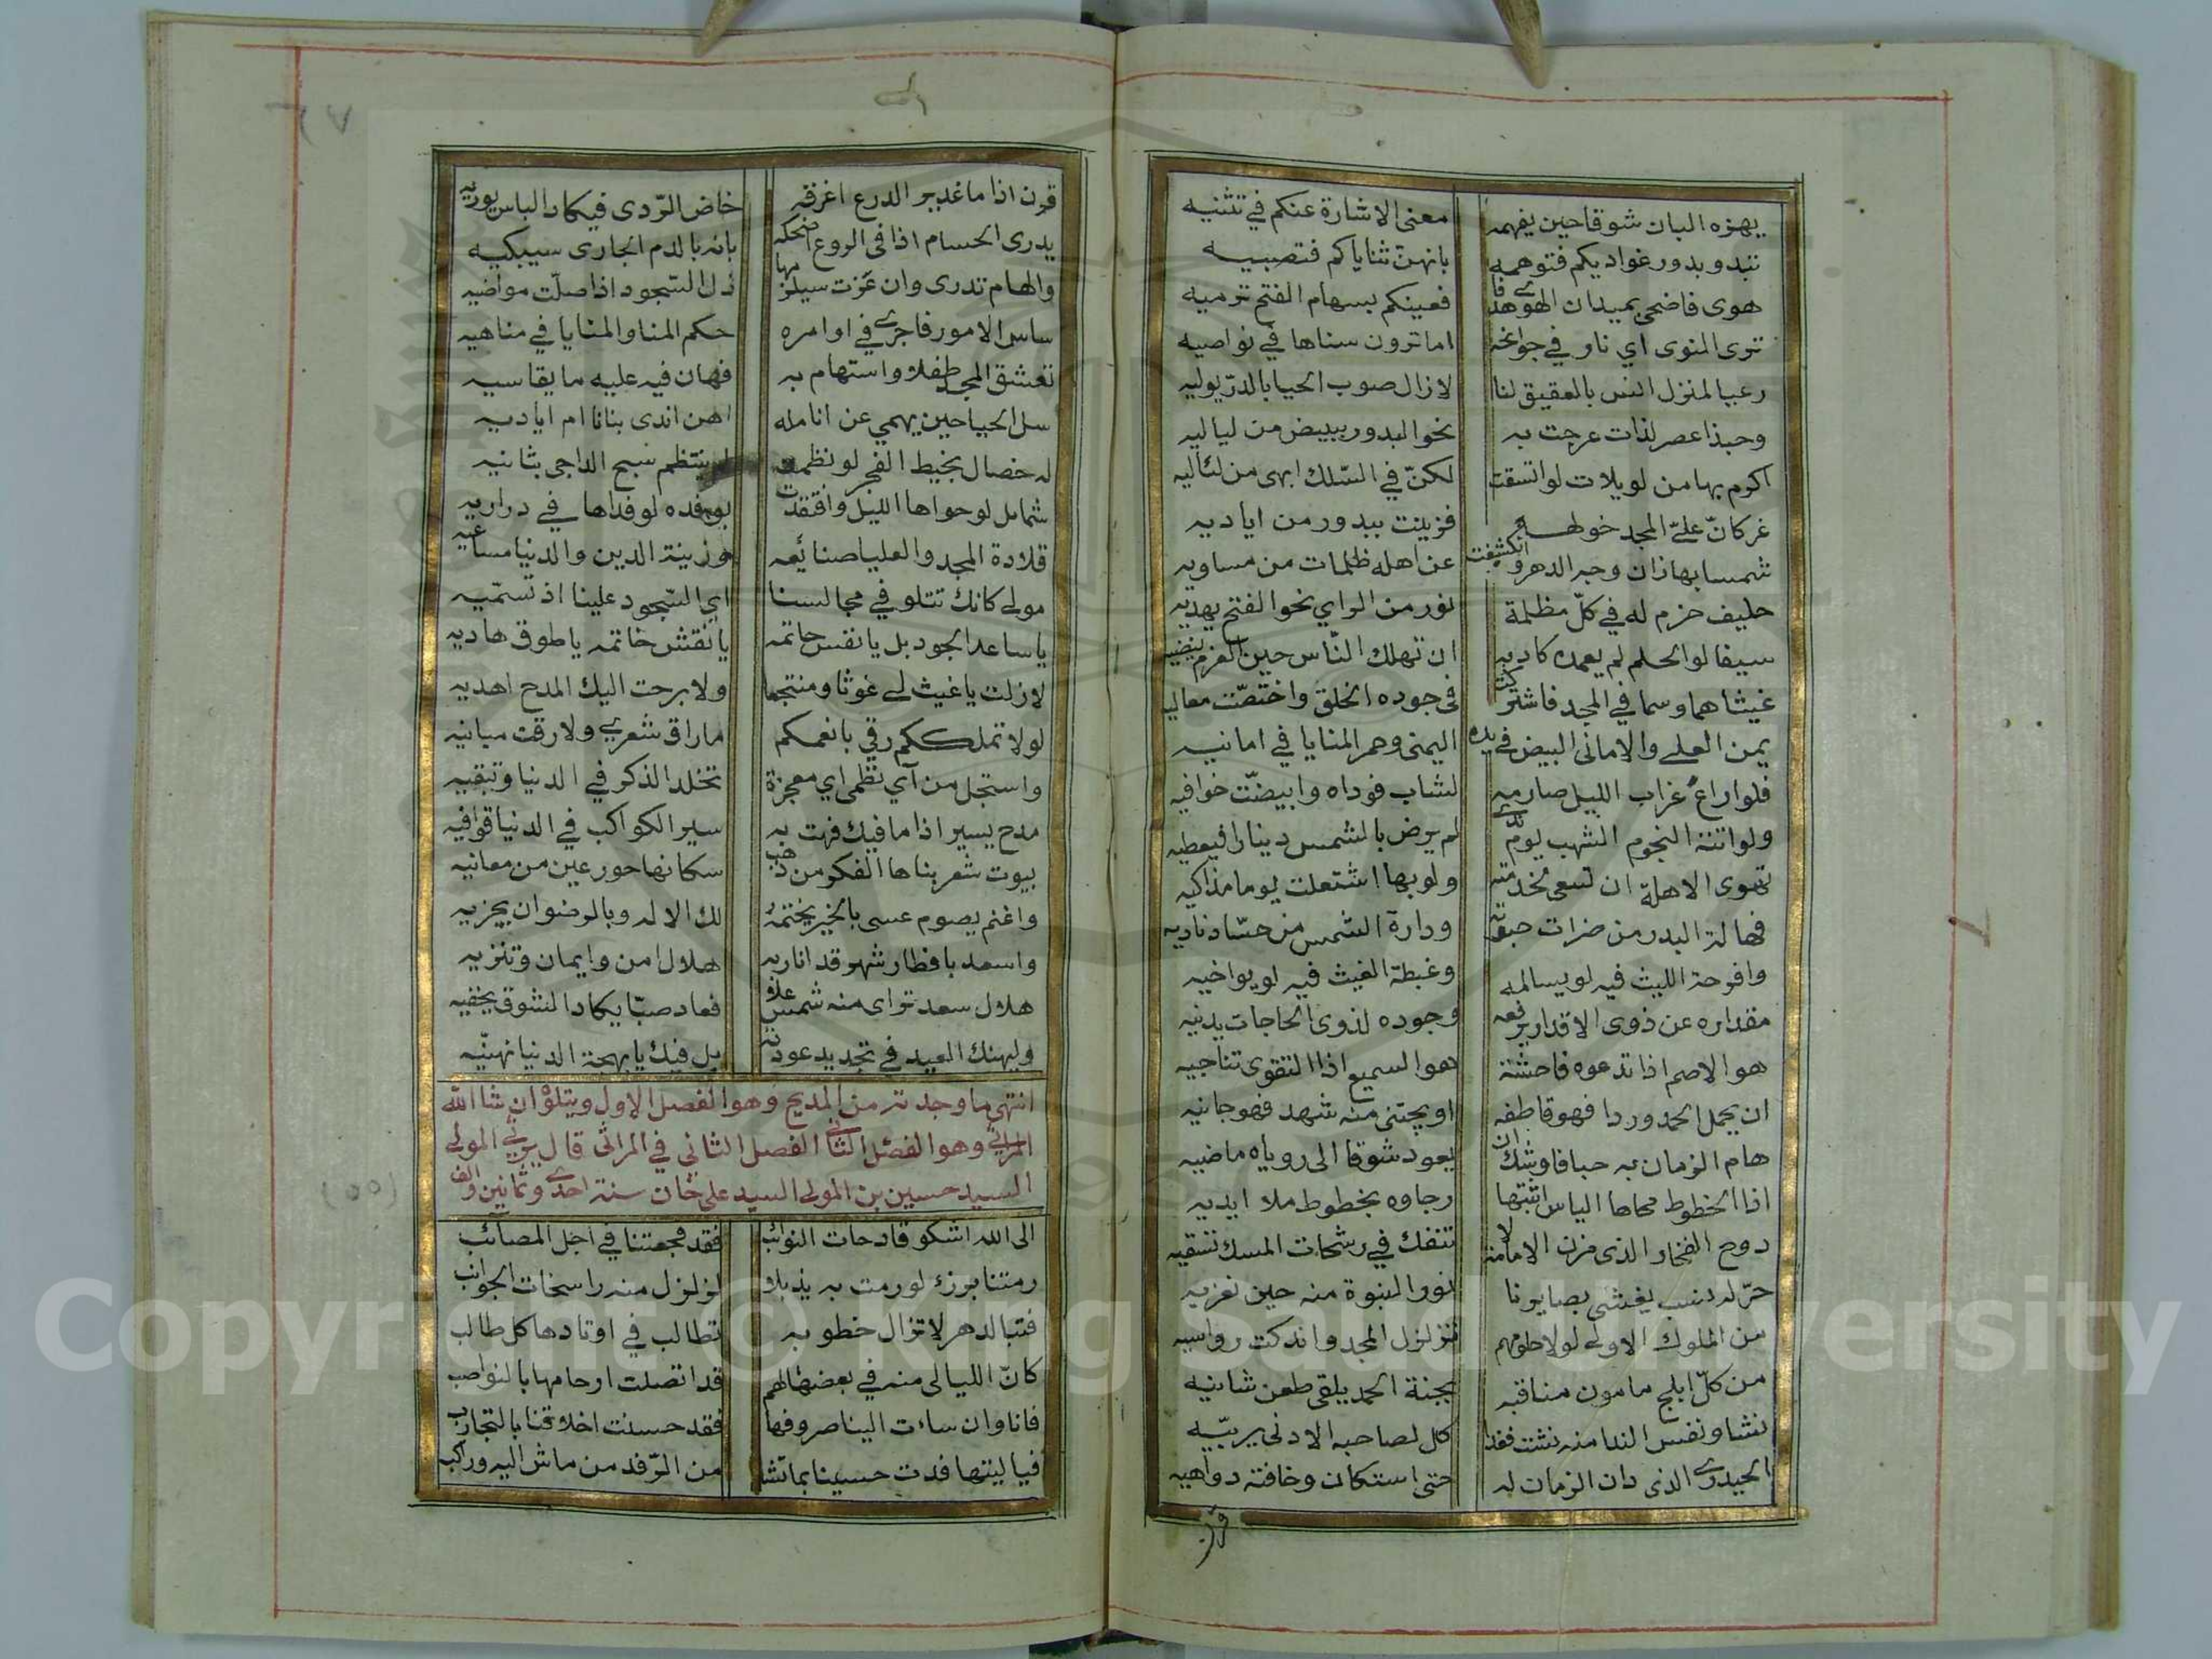 يهزه البان شوقا حين يفهمه معنى الاشارة عنكم في تثنيه
تبدو بدور غواديكم فتوهمه بانهن ثناياكم فتصبيه
هوى فاضحى بميدان الهوى هدفا فعينكم بسهام الفتح ترميه
ترى النوى اي نار في جوانحه اما ترون سناها في نواصيه
رعيا لمنزل انس بالعقيق لنا لا زال صوب الحيا بالدر يوليه
وحبذا عصر لذات عرجت به نحو البدور ببيض من لياليه
اكرم بها من لويلات لو اتسقت لكن في السلك ابهى من لئاليه
غر كان علي المجد خولها فزينت ببدور من اياديه
شمسا بها زان وجه الدهر وانكشفت عن اهله ظلمات من مساويه
حليف حزم له في كل مظلمة نور من الراي نحو الفتح يهديه
سيفا لو الحلم لم يعمده كاد به ان تهلك الناس حين العزم ينضيه
غيثا هما وسما في المجد فاشتركت في جوده الخلق واختصت معاليه
يمن العلى والاماني البيض في يده اليمنى وحمر المنايا في امانيه
فلو اراع غراب الليل صارمه لشاب فوداه وابيضت خوافيه
ولو اتته النجوم الشهب يوم ندى لم يرض بالشمس دينارا فيعطيه
تهوى الاهلة ان تسعى بخدمته ولو بها اشتعلت يوما مذاكيه
فهالة البدر من ضرات حبوته ودارة الشمس من حساد ناديه
وافرحة الليث فيه لو يسالمه وغبطة الغيث فيه لو يواخيه
مقداره عن ذوى الاقدار يرفعه وجوده لذوى الحاجات يدنيه
هو الاصم اذا تدعوه فاحشة هو السميع اذا التقوى تناجيه
ان يجمل الحمد وردا فهو قاطفه او يجتنى منه شهد فهو جانيه
هام الزمان به حبا فاوشك ان يعود شوقا الى روياه ماضيه
اذا الخطوط محاها الياس اثبتها رجاوه بخطوط ملا ايديه
دوح الفخار الذى مزن الامامة لا تنفك في رشحات المسك تسقيه
حر له نسب يغشى بصايرنا نور النبوة منه حين نعزيه
من الملوك الاولى لولا حلومهم تزلزل المجد واندكت رواسيه
من كل ابلج مامون مناقبه بجنة الحمد يلقى طعن شانيه
نشا ونفس الندا منه نشت فغدا كل لصاحبه الادنى يربيه
الحيدرى الذى دان الزمان له حتى استكان وخافته دواهيه
قرن
قرن اذا ما غدير الدرع اغرقه خاض الردى فيكاد الباس يوريه
يدرى الحسام اذا في الروع اضحكه بانه بالدم الجارى سيبكيه
والهام تدرى وان عزت سيلزمها ذل السجود اذا صلت مواضيه
ساس الامور فاجرى في اوامره حكم المنا والمنايا في مناهيه
تعشق المجد طفلا واستهام به فهان فيه عليه ما يقاسيه
سل الحيا حين يهمي عن انامله اهن اندى بنانا ام اياديه
له خصال بخيط الفجر لو نظمت لم ينتظم سبح الداجى بثانيه
شمايل لو حواها الليل وافتقدت بوفده لو فداها في دراريه
قلادة المجد والعليا صنائعه وزينة الدين والدنيا مساعيه
مولى كانك تتلو في مجالسنا اي السجود علينا اذ تسميه
يا ساعد الجود بل يا نفس حاتمه يا نقش خاتمه يا طوق هاديه
لا زلت يا غيث لى غوثا ومنتجعا ولا برحت اليك المدح اهديه
لولا تملككم رقي بانعمكم ما راق شعرى ولا رقت مبانيه
واستجل من آي نظمى اي معجزة تخلد الذكر في الدنيا وتبقيه
مدح يسير اذا ما فيك فهت به سير الكواكب في الدنيا قوافيه
بيوت شعر بناها الفكر من ذهب سكانها حور عين من معانيه
واغنم بصوم عسى بالخير يختمه لك الاله وبالرضوان يجزيه
واسعد بافطار شهر قد انار به هلال امن وايمان وتنزيه
هلال سعد تراى منه شمس علا فعاد صبا يكاد الشوق يخفيه
وليهنك العيد في تجديد عودته بل فيك يا بهجة الدنيا نهنيه
انتهى ما وجدته من المديح وهو الفصل الاول ويتلوه ان شا الله
المراثي وهو الفصل الثاني الفصل الثاني في المراثى قال يرثي المولى
السيد حسين بن المولى السيد علي خان سنة احدى وثمانين والف
الى الله اشكو قادحات النوائب فقد فجعتنا في اجل المصائب
رمتنا برزء لو رمت به يذبلا لزلزل منه راسخات الجوانب
فتبا لدهر لا تزال خطوبه تطالب في اوتادها كل طالب
كان الليالى منه في بعضها لهم قد اتصلت ارحامها بالنواصب
فانا وان ساءت الينا صروفها فقد حسنت اخلاقنا بالتجارب
فيا ليتها فدت حسينا بما تشا من الرفد من ماش اليه وراكب